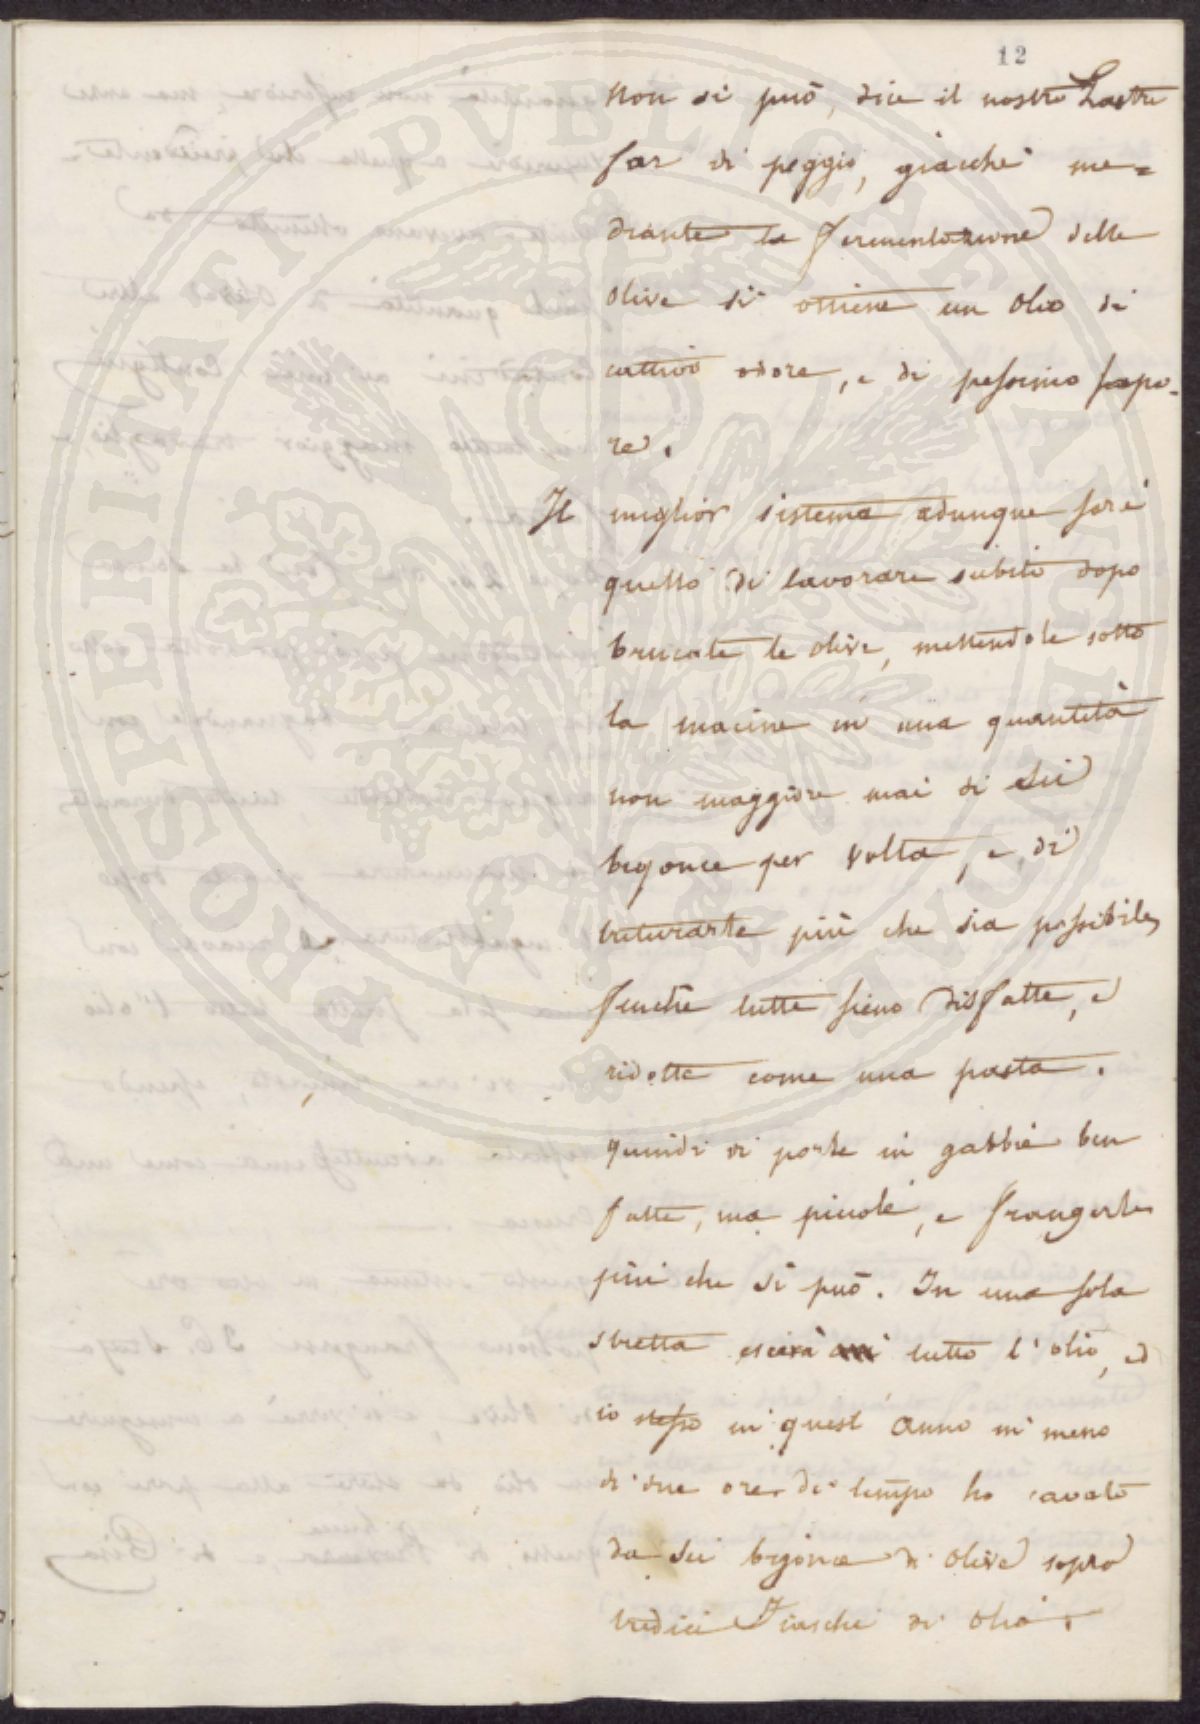 12
Non si può, dice il nostro Lastri
far di peggio, giacchè me=
diante la fermentazione delle
Olive si ottiene un Olio di
cattivo odore, e di pessimo sapo-
re.
Il miglior sistema adunque sarà
quello di lavorare subito dopo
brucate le olive, mettendole sotto
la macine in una quantità
non maggiore mai di sei
bigonce per volta, e di
triturarle più che sia possibile,
finchè tutte sieno disfatte, e
ridotte come una pasta.
Quindi di porle in gabbie ben
fatte, ma piccole, e frangerle
più che si può. In una sola
stretta escirà tutto l'olio, ed
io stesso in quest'Anno in meno
di due ore di tempo ho cavato
da sei bigonce di olive sopra
tredici Fiaschi di Olio.
PROSPERITATI PVBLICAE AVGENDAE